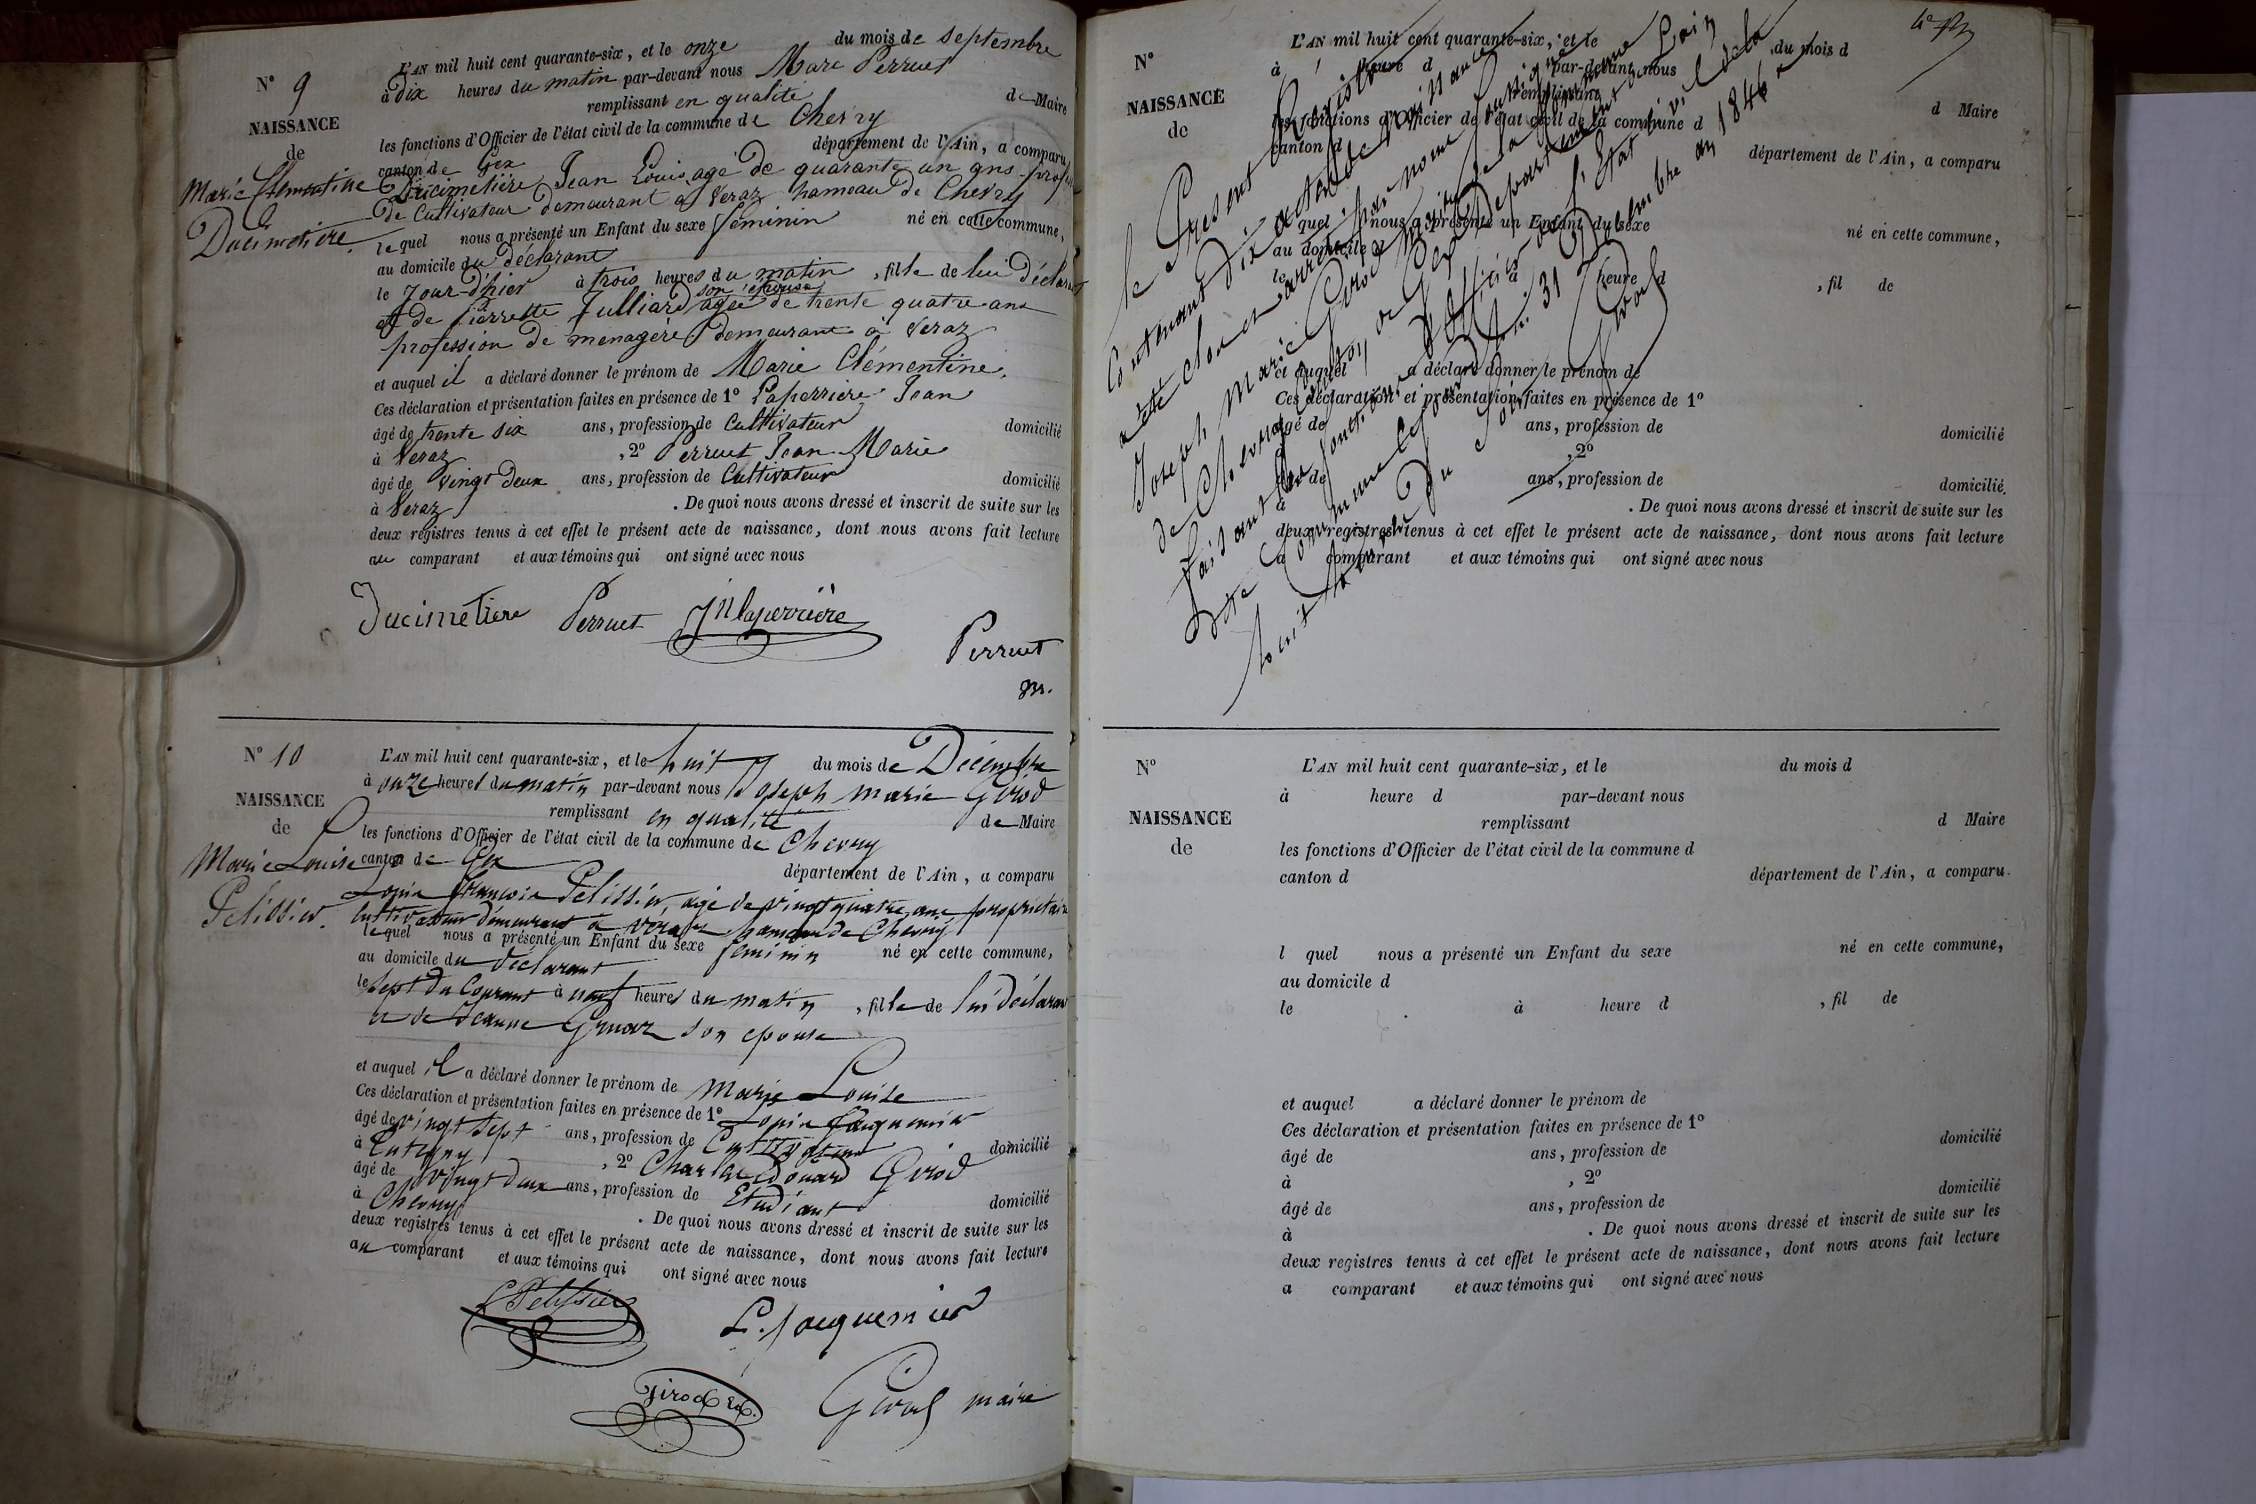 N° 9
NAISSANCE
de
Marie Clémentine
Ducimetière.
L'AN mil huit cent quarante-six, et le onze du mois de septembre
à dix heures du matin par-devant nous Marc Perruet
remplissant en qualité de Maire
les fonctions d'Officier de l'état civil de la commune de Chevry
canton de Gex département de l'Ain, a comparu
Ducimetière Jean Louis agé de quarante un ans profession
de Cultivateur demeurant à Veraz hameau de Chevry
lequel nous a présenté un Enfant du sexe féminin né en cette commune,
au domicile du déclarant
le jour d'hier à trois heures du matin, fille de lui Déclarant
son épouse
et de Pierrette Julliard agée de trente quatre ans
profession de menagère demeurant à Veraz
et auquel il a déclaré donner le prénom de Marie Clémentine.
Ces déclaration et présentation faites en présence de 1° Laperrière Jean
âgé de trente six ans, profession de Cultivateur domicilié
à Veraz, 2° Perruet Jean-Marie
âgé de vingt deux ans, profession de Cultivateur domicilié
à Veraz. De quoi nous avons dressé et inscrit de suite sur les
deux registres tenus à cet effet le présent acte de naissance, dont nous avons fait lecture
au comparant et aux témoins qui ont signé avec nous
Ducimetiere Perruet Jn laperrière
Perruet
m.
N° 10
NAISSANCE
de
Marie Louise
Pelissier.
L'AN mil huit cent quarante-six, et le huit du mois de Décembre
à onze heures du matin par-devant nous Joseph marie Girod
remplissant en qualité de Maire
les fonctions d'Officier de l'état civil de la commune de Chevry
canton de Gex département de l'Ain, a comparu
Louis françois Pelissier, agé de vingt quatre ans propriétaire
cultivateur demeurant à véraz hameau de Chevry
lequel nous a présenté un Enfant du sexe féminin né en cette commune,
au domicile du déclarant
le sept du Courant à neuf heures du matin, fille de lui déclarant
et de Jeanne Gruaz son epouse
et auquel il a déclaré donner le prénom de Marie Louise
Ces déclaration et présentation faites en présence de 1° Louis Jacquemier
âgé de vingt sept ans, profession de Cultivateur domicilié
à, 2° Charles Edouard Girod
âgé de vingt deux ans, profession de Etudiant domicilié
à Chevry. De quoi nous avons dressé et inscrit de suite sur les
deux registres tenus à cet effet le présent acte de naissance, dont nous avons fait lecture
au comparant et aux témoins qui ont signé avec nous
L Pelissier L. Jacquemier
Girod Ed. Girod maire
N°
NAISSANCE
de
L'AN mil huit cent quarante-six, et le du mois d
à heure d par-devant nous
remplissant d Maire
les fonctions d'Officier de l'état civil de la commune d
canton d département de l'Ain, a comparu
l quel nous a présenté un Enfant du sexe né en cette commune,
au domicile d
le à heure d, fil de
et auquel a déclaré donner le prénom de
Ces déclaration et présentation faites en présence de 1°
âgé de ans, profession de domicilié
à, 2°
âgé de ans, profession de domicilié
à. De quoi nous avons dressé et inscrit de suite sur les
deux registres tenus à cet effet le présent acte de naissance, dont nous avons fait lecture
a comparant et aux témoins qui ont signé avec nous
le Présent Registre
Contenant dix actes de Naissance
a été clos et arrêté par nous soussigné
Joseph Marie Girod maire de la Commune
de Chevry Canton de Gex Département de Lain
faisant les fonctions d'officier de l'Etat civil de la
dite Commune le jourd'hui 31 Décembre an 1846
huit heures du Soir Girod
N°
NAISSANCE
de
L'AN mil huit cent quarante-six, et le du mois d
à heure d par-devant nous
remplissant d Maire
les fonctions d'Officier de l'état civil de la commune d
canton d département de l'Ain, a comparu.
l quel nous a présenté un Enfant du sexe né en cette commune,
au domicile d
le à heure d, fil de
et auquel a déclaré donner le prénom de
Ces déclaration et présentation faites en présence de 1°
âgé de ans, profession de domicilié
à, 2°
âgé de ans, profession de domicilié
à. De quoi nous avons dressé et inscrit de suite sur les
deux registres tenus à cet effet le présent acte de naissance, dont nous avons fait lecture
a comparant et aux témoins qui ont signé avec nous